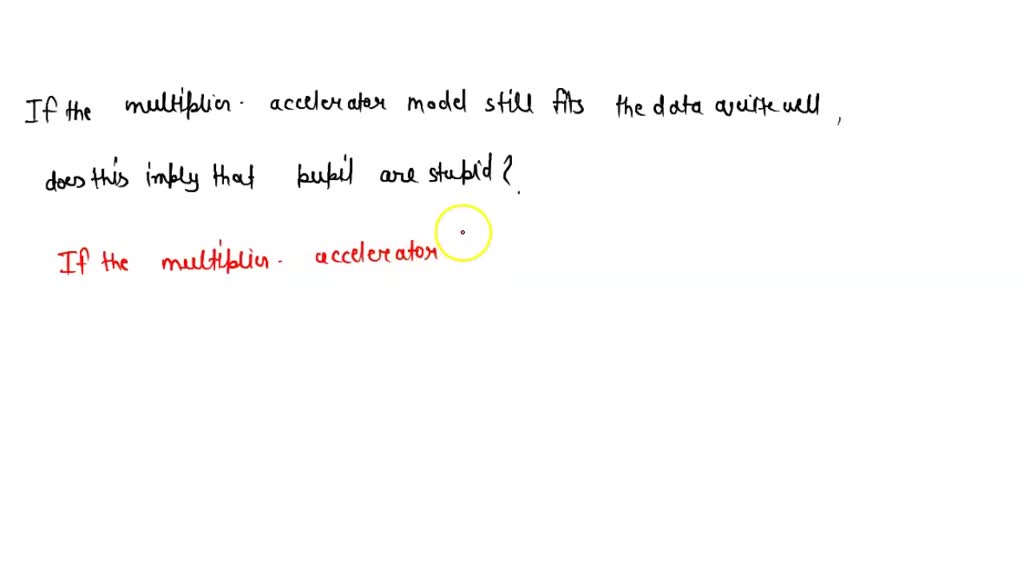 If the multiplier. accelerator model still fits the data quite well,
does this imply that pupil are stupid?.
If the multiplier. accelerator